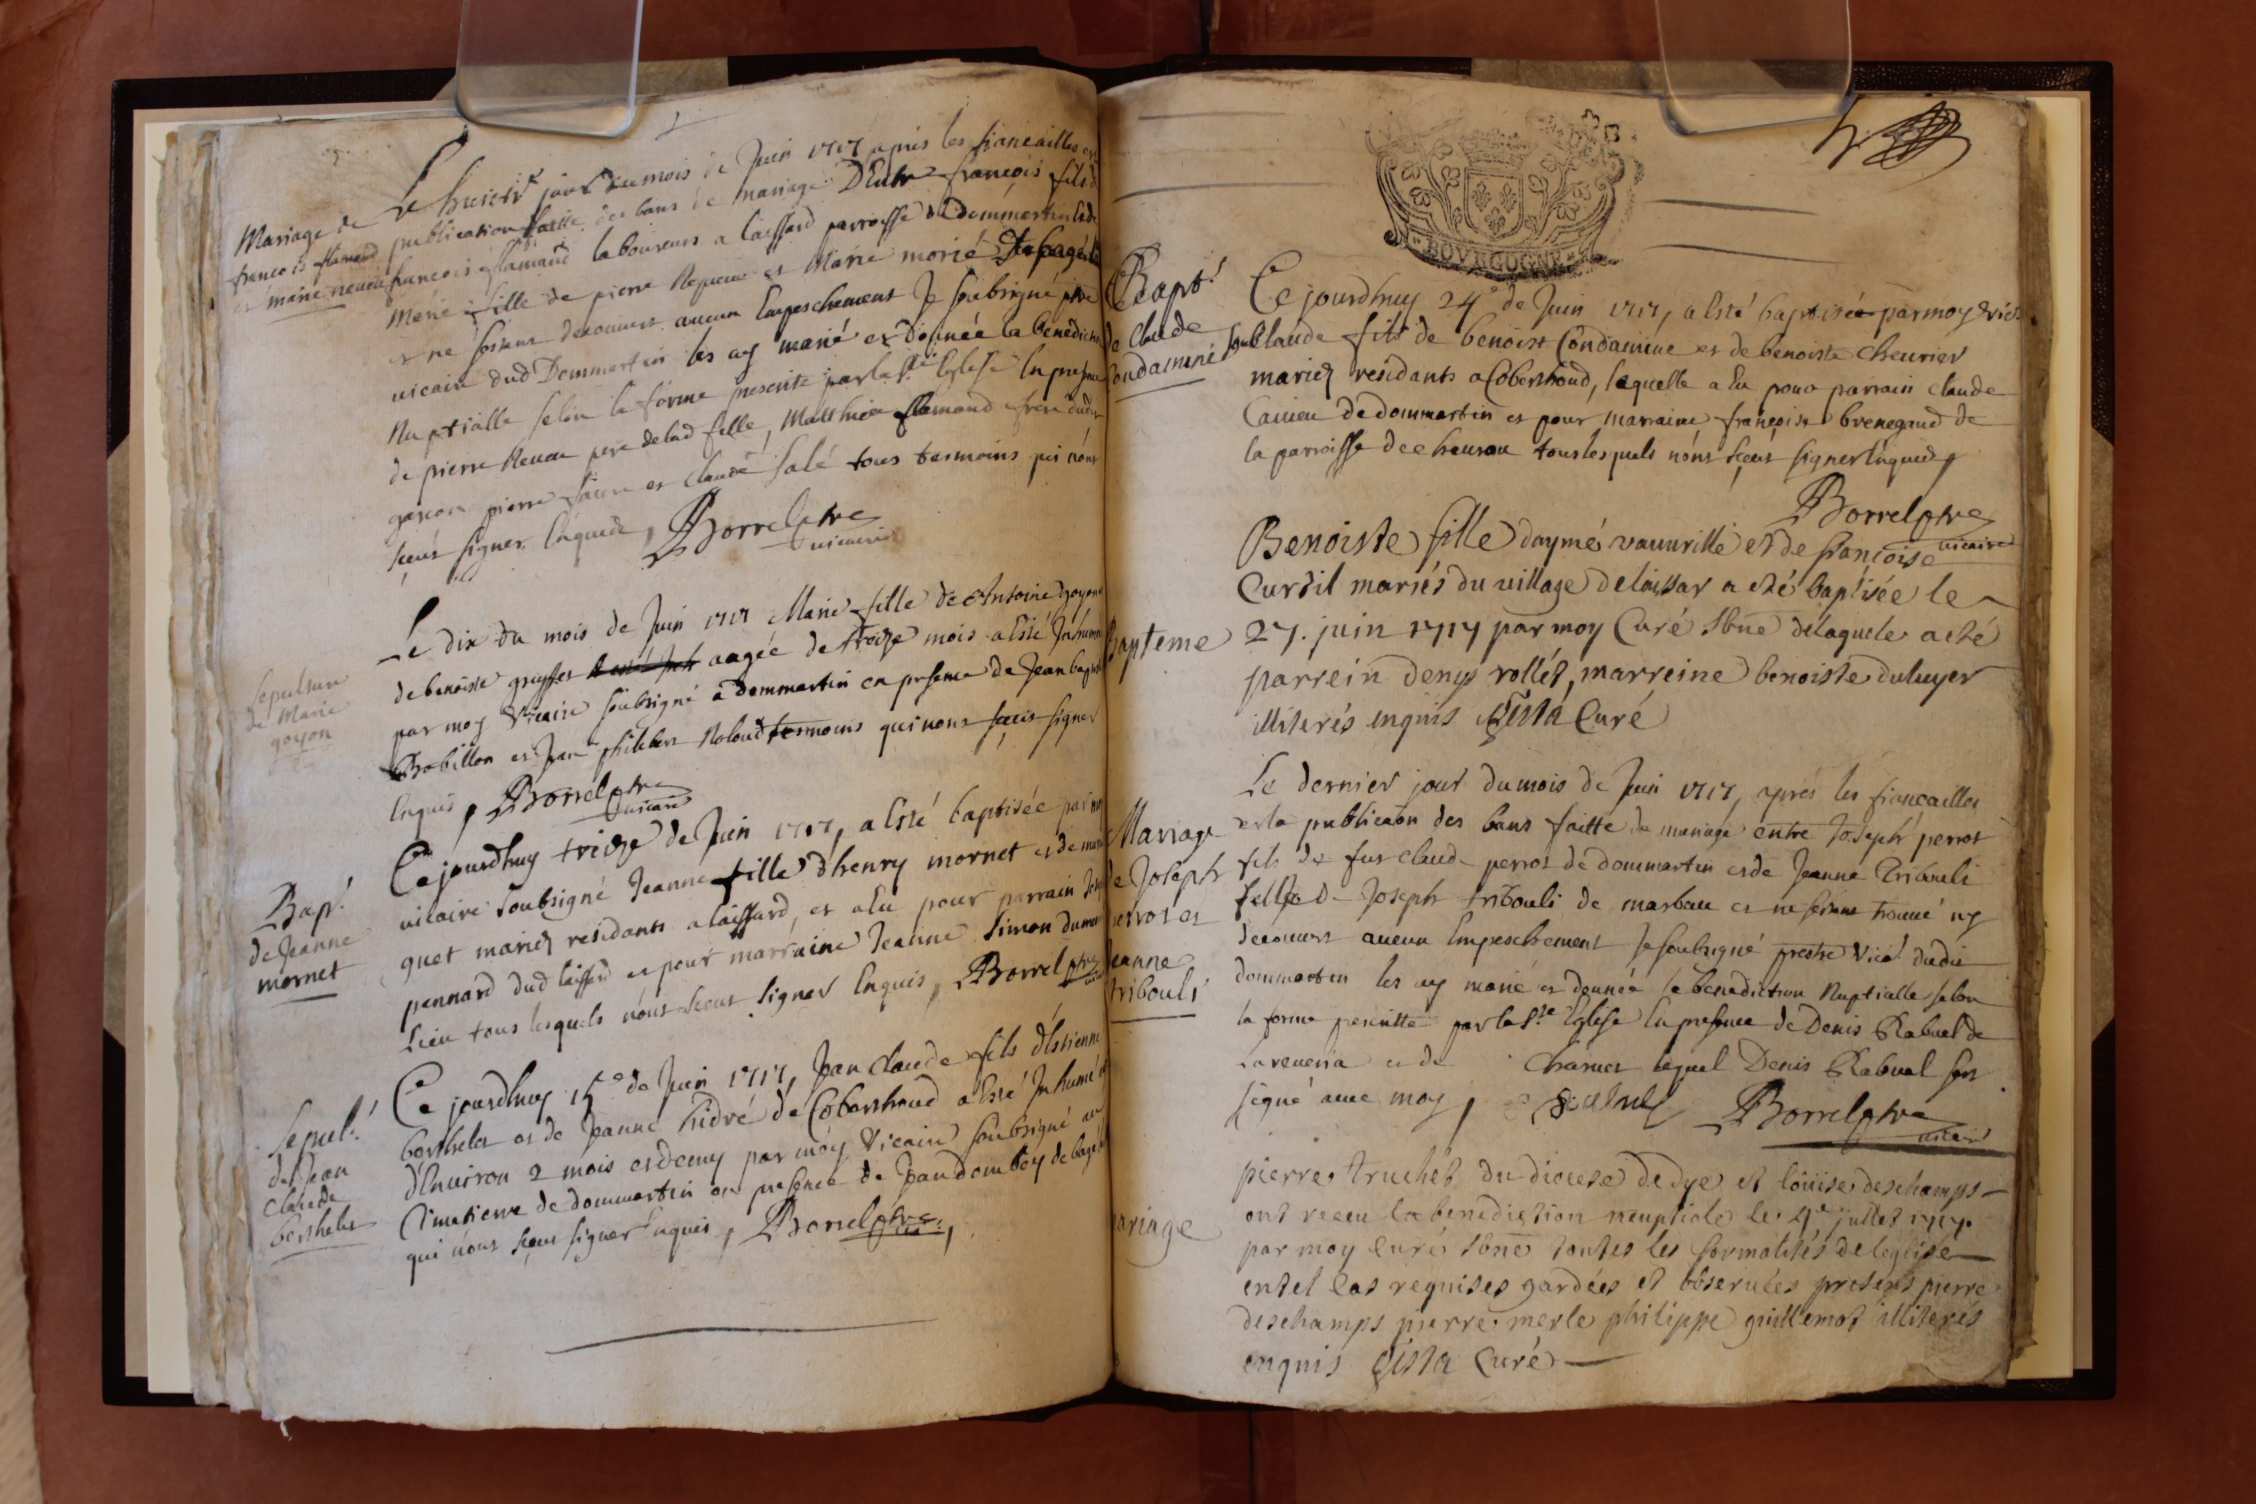 Mariage de
francois flamand
et marie neveu
Le huictie jour du mois de Juin 1717 apres les fiancailles et
publication faitte des bans de mariage D'Entre francois fils de
francois flamand laboureurs a laissard parroisse de dommartin
Marie fille de pierre Neveu et Marie morié
et ne sestant decouvert aucun Empeschement Je soubsigné ptre
vicaire dud Dommartin les ay marié et donnée la benediction
Nuptialle selon la forme prescritte par la Ste Eglise En presence
de pierre Neveu pere de lad fille, Matthieu flamand frere dud
garcon pierre et Claude Salé tous tesmoins qui n'ont
sceut signer Enquis, Borrel ptre
vicaire
Sepulture
de Marie
goyon
Le dix du mois de Juin 1717 Marie fille de Antoine goyon
de benoiste aagée de treize mois a Esté Inhumée
par moy Vicaire soubsigné a dommartin en presence de Jean baptiste
Bobillon et Jean philibert tesmoins qui n'ont sceut signer
Enquis, Borrel ptre
vicaire
Bapt.
de Jeanne
mornet
Ce jourdhuy treize de Juin 1717, a Esté baptisée par moy
vicaire soubsigné Jeanne fille d'henry mornet et de
quet mariez residants a laissard, et a Eu pour parrain
pannard dud laissard et pour marraine Jeanne Simon du mesme
Lieu tous lesquels n'ont sceut signer Enquis, Borrel ptre
Sepul.
de Jean
Claude
berthelet
Ce jourdhuy 15e de Juin 1717, Jean Claude fils d'Estienne
berthelet et de Jeanne de Coberthoud a Esté Inhumé
d'Environ 2 mois et demy par moy Vicaire soubsigné au
Cimetierre de dommartin en presence de Jean
qui n'ont sceu signer Enquis, Borrel ptre
BOVRGOGNE
Bapt.
de Claude
Condamine
Ce jourdhuy 24e de Juin 1717, a Esté baptisée par moy vic.
soub. Claude fils de benoist Condamine et de benoiste Chevrier
mariez residants a Coberthoud, laquelle a Eu pour parrain Claude
de dommartin et pour marraine francoise brenegaud de
la parroisse de tous lesquels n'ont sceut signer Enquis,
Borrel ptre
vicaire
Bapteme
Benoiste fille d'aymé vaunville et de francoise
Curtil mariés du village de laissar a eté baptisée le
27. juin 1717 par moy Curé sbne delaquele a eté
parrein denys rollet, marreine benoiste duluyer
illiterés enquis Gista Curé
Mariage
de Joseph
perrot et
Jeanne
tribouli
Le dernier jour du mois de Juin 1717, aprés les fiancailles
et la publicaon des bans faitte de mariage entre Joseph perrot
fils de fut Claude perrot de dommartin et de Jeanne Tribouli
fille de Joseph tribouli de et ne sestant trouvé ny
decouvert aucun Empeschement Je soubsigné prestre Vic. dudit
dommartin les ay marié et donnée la benediction Nuptialle selon
la forme prescritte par la Ste Eglise En presence de Denis Rabuel de
et de Charnet lequel Denis Rabuel sest
signé avec moy, Borrel ptre
vicaire
Mariage
pierre truchet du diocese de dye et loüise deschamps
ont receu la benediction neuptiale le 4e juillet 1717
par moy Curé sbné toutes les formalités de leglise
en tel cas requises gardées et observées presens pierre
deschamps pierre merle philippe guillemot illiterés
enquis Gista Curé